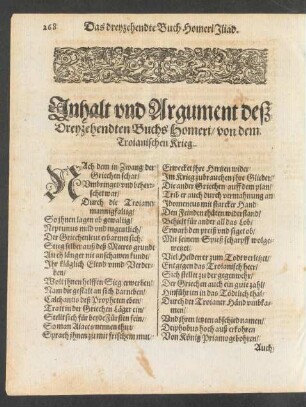 268 Das dreyzehendte Buch Homeri Iliad.
Inhalt vnd Argument deß
Dreyzehendten Buchs Homeri/ von dem
Troianischen Krieg.
NAch dem in Zwang der
Griechen schar/
Vmbringet vnd beherrschet war/
Durch die Troianer
mannigfaltig/
So jhnen lagen ob gewaltig/
Neptunus mild vnd
Der Griechen leut erbarmt sich/
Stieg selbst auß deß Meeres grund
Auch länger nit anschawen kundt/
Ihr kläglich Elend vnnd Verderben/
Wolt jhnen helffen Sieg erwerben/
Nam die gestalt an sich darneben/
Calchantis deß Propheten eben/
Tratt in der Griechen Läger ein/
Stellt sich für beyde Fürsten fein/
So man Aiaces nennen thut/
Sprach jhnen zu mit frischem mut/
Erwecket jhre Hertzen wider
Im Krieg zubrauchen jhre Glieder/
Die ander Griechen auff dem plan/
Trib er auch durch vermahnung an
Idomeneus mit starcker Hand
Den Feinden thäten widerstand/
Behielt für ander all das Lob/
Erwarb den preiß vnd siget ob/
Mit seinem Spieß scharpff
Viel Helderer zum Todt verletzet/
Entgegen das Troianisch heer
Sich stellet zu der gegenwehr/
Der Griechen auch ein gute zahl/
Hinführen in das Tödtlich thal/
Durch der Troianer Händ vmbkamen/
Vnd jhren letzten abschied namen/
Deiphobus hoch auß erkohren
Von König Priamo gebohren/
Auch